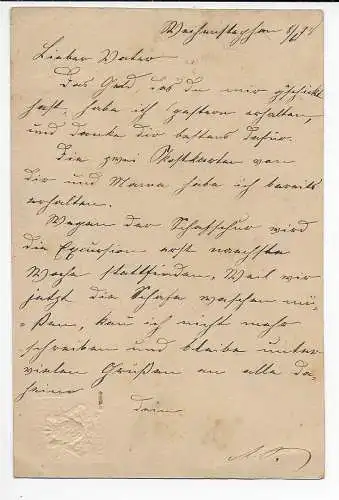 Weihenstephan
Lieber Vater
Das Geld, das du mir geschickt
hast, habe ich gestern erhalten,
und danke dir bestens dafür.
Die zwei Postkarten von
dir und Mama habe ich bereits
erhalten.
Wegen der Schafschur wird
die Excursion erst naechste
Woche stattfinden, Weil wir
jetzt die Schafe waschen mü-
ßen, kan ich nicht mehr
schreiben und bleibe unter
vielen Grüßen an alle da-
heime
dein